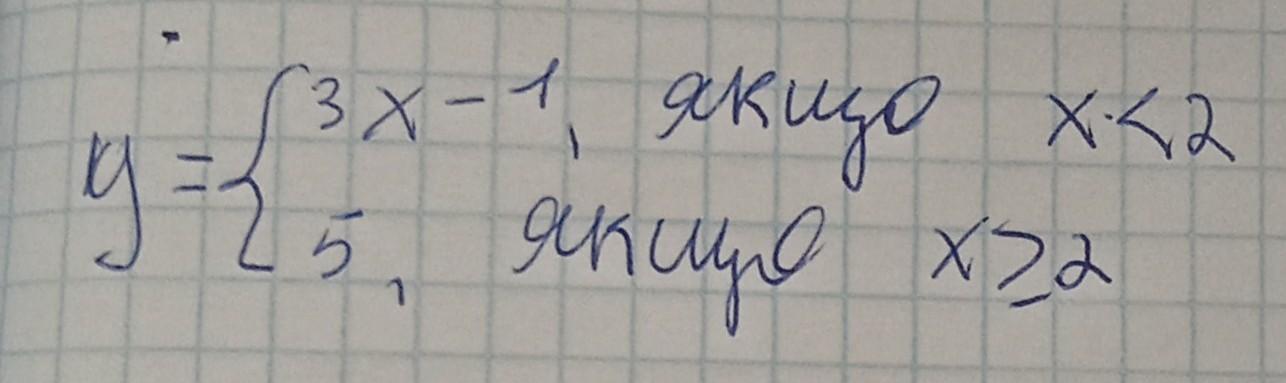 y = { 3x - 1, якщо x < 2
5, якщо x ≥ 2